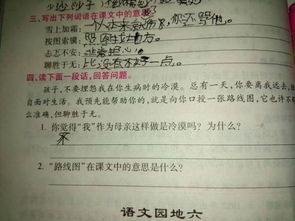 三、写出下列词语在课文中的意思。
雪上加霜:
按图索骥: 照图找地方。
忐忑不安: 让着担心。
聊胜于无: 比没有好一点。
四、读下面一段话,回答问题。
孩子,不要埋怨我在你生病时的冷漠。总有一天,你要离我远去,独
自面对生活。我预先能帮助你的,就是向你口授一张路线图,它也许不那
么准确,但聊胜于无。
1. 你觉得“我”作为母亲这样做是冷漠吗?为什么?
2. “路线图”在课文中的意思是什么?
语文园地六